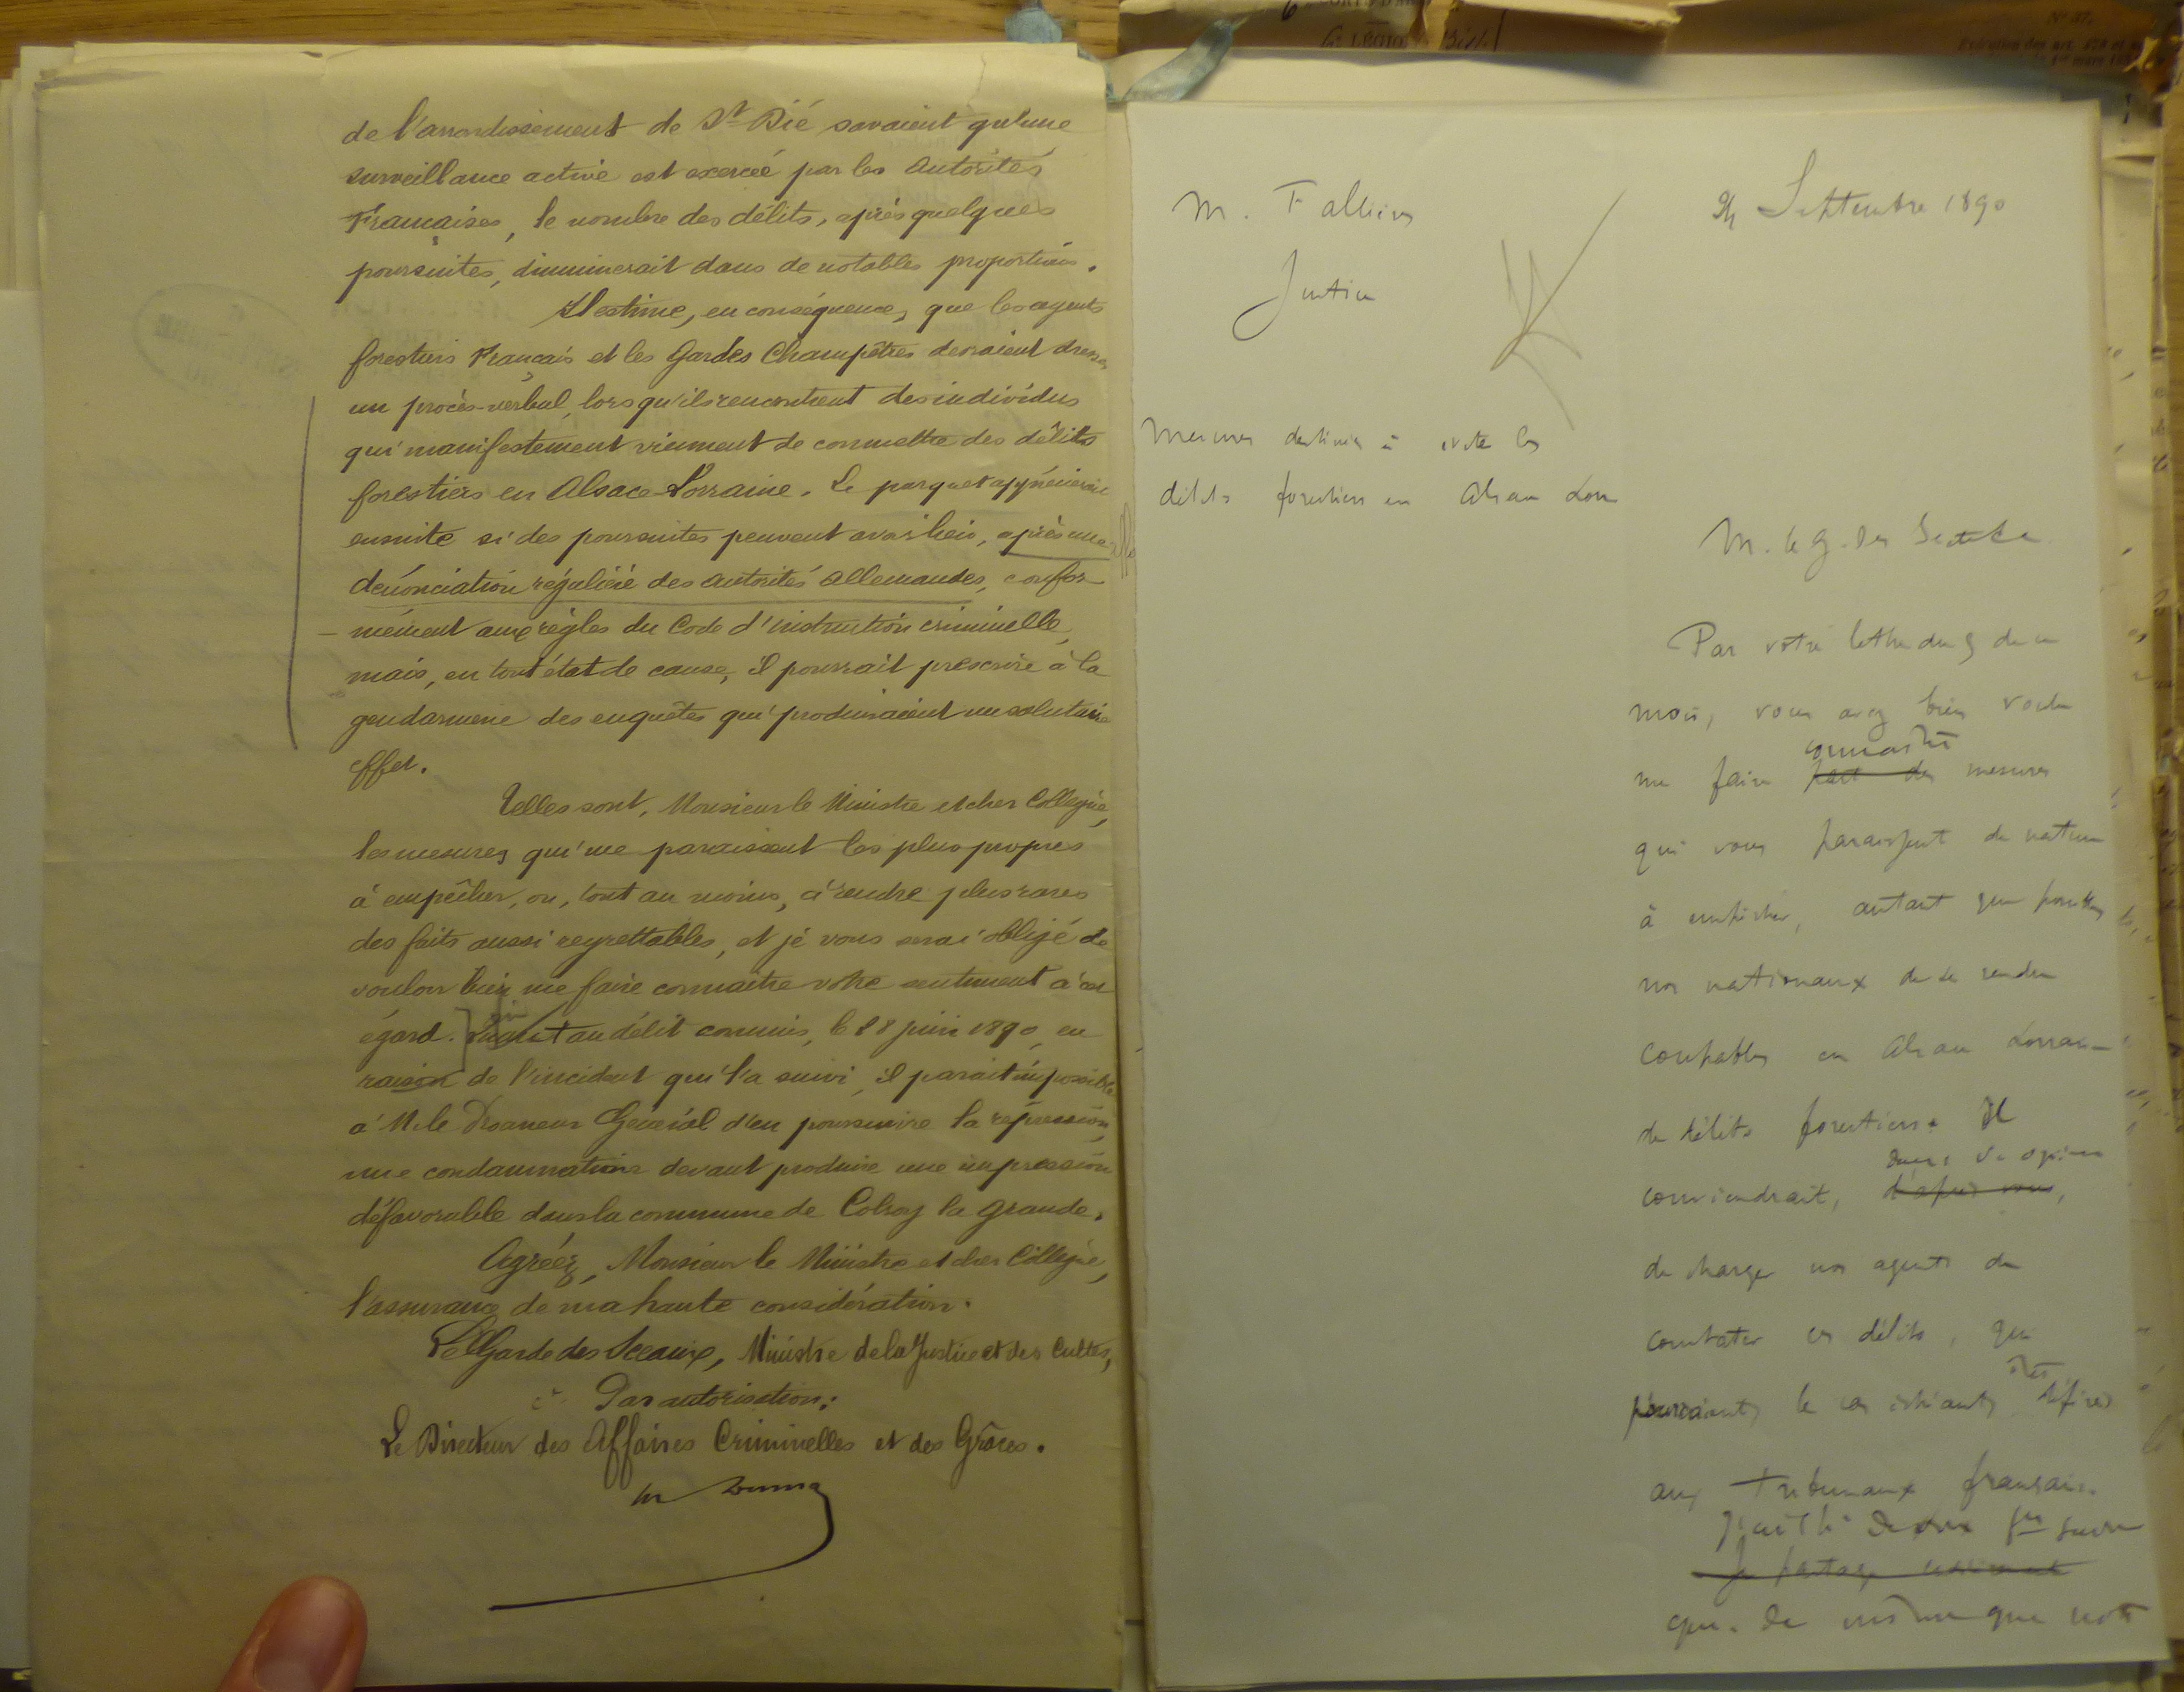 de l'arrondissement de St Dié savaient qu'une
surveillance active est exercée par les Autorités
Françaises, le nombre des délits, après quelques
poursuites, diminuerait dans de notables proportions.
Il estime, en conséquence, que les agents
forestiers Français et les Gardes Champêtres devraient dresser
un procès-verbal, lorsqu'ils rencontrent des individus
qui manifestement viennent de commettre des délits
forestiers en Alsace-Lorraine. Le parquet apprécierait
ensuite si des poursuites peuvent avoir lieu, après une
dénonciation régulière des autorités Allemandes, confor-
-mément aux règles du Code d'instruction criminelle,
mais, en tout état de cause, il pourrait prescrire à la
gendarmerie des enquêtes qui produiraient un salutaire
effet.
Telles sont, Monsieur le Ministre et cher Collègue,
les mesures qui me paraissent les plus propres
à empêcher, ou, tout au moins, à rendre plus rares
des faits aussi regrettables, et je vous serai obligé de
vouloir bien me faire connaître votre sentiment à cet
égard. Quant au délit commis, le 28 juin 1890, en
raison de l'incident qui l'a suivi, il parait impossible
à M. le Procureur Général d'en poursuivre la répression,
une condamnation devant produire une impression
défavorable dans la commune de Colroy la Grande.
Agréez, Monsieur le Ministre et cher Collègue,
l'assurance de ma haute considération.
Le Garde des Sceaux, Ministre de la Justice et des Cultes,
Par autorisation:
Le Directeur des Affaires Criminelles et des Grâces.
6e LÉGION
No 37.
M. Fallières
24 Septembre 1890
Justice
Mesures destinées à éviter les
délits forestiers en Alsace Lorr
M. le G. des Sceaux
Par votre lettre du 9 de ce
mois, vous avez bien voulu
connaître
me faire part des mesures
qui vous paraissent de nature
à empêcher, autant que possible,
nos nationaux de se rendre
coupables en Alsace Lorraine
de délits forestiers. Il
dans v. opinion
conviendrait, d'après vous,
de charger nos agents de
constater ces délits, qui
être
pourraient, le cas échéant, déférés
aux tribunaux français.
Je partage
que, de même que votre